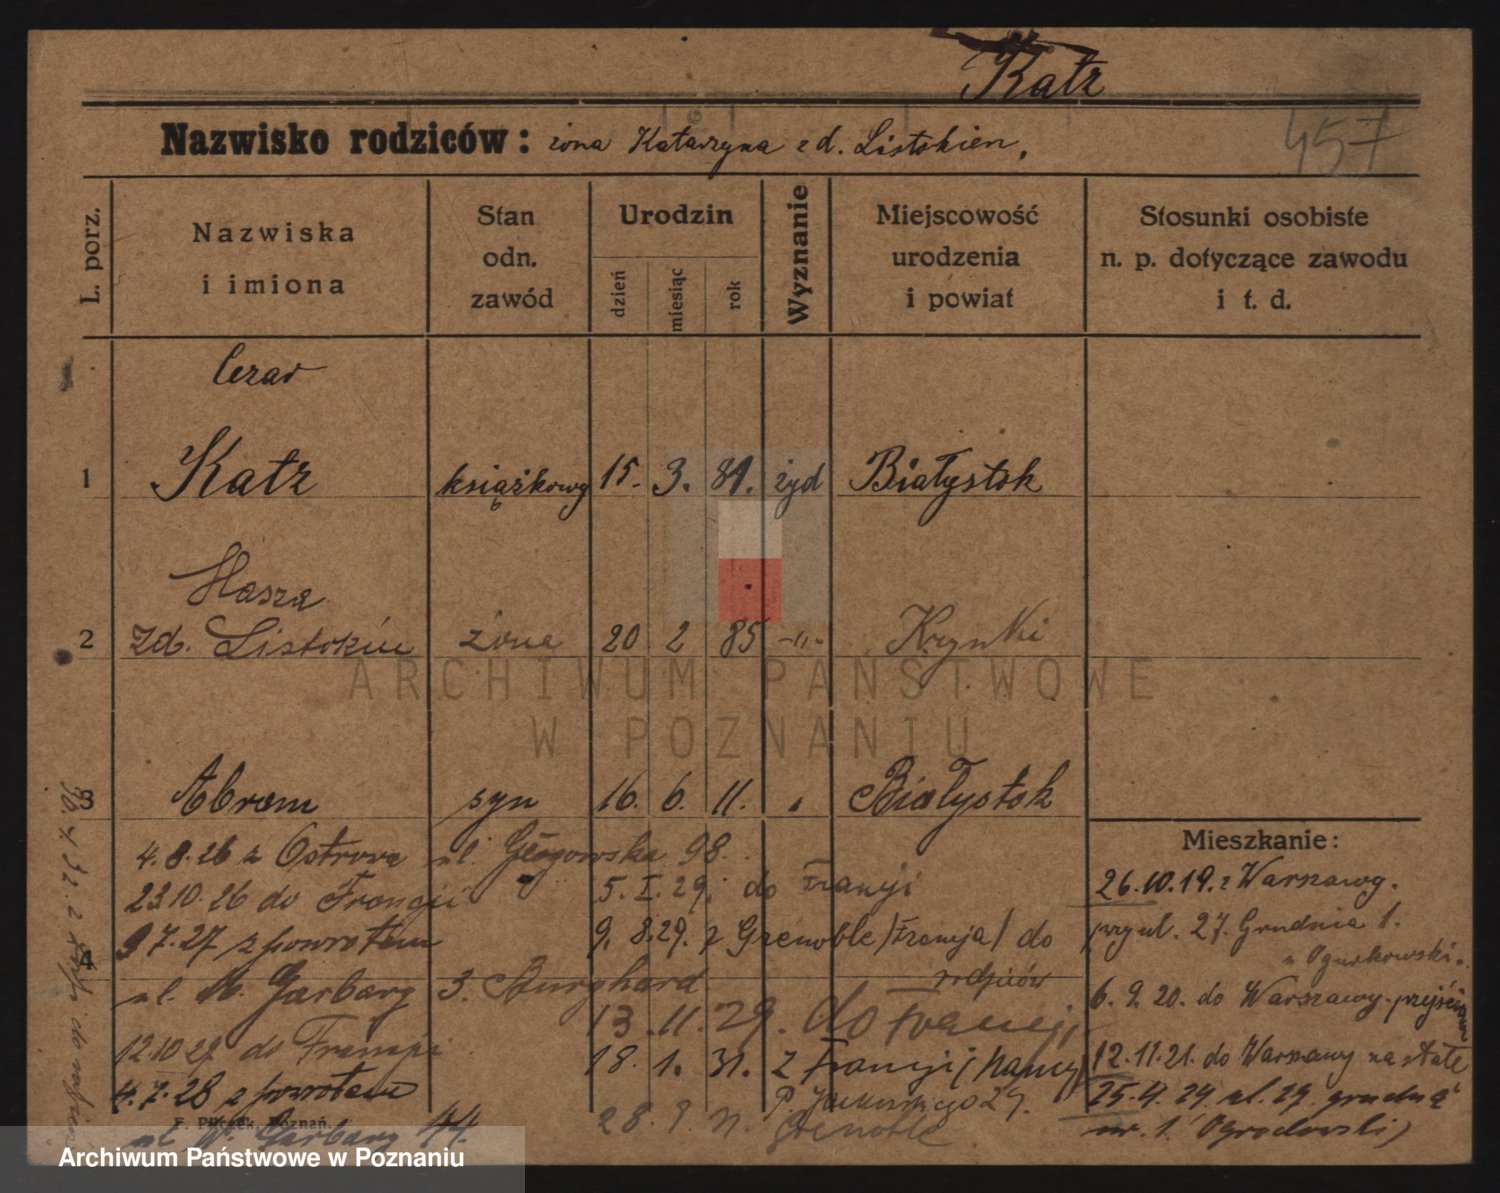 Katz
Nazwisko rodziców: żona Katarzyna z d. Listokien.
457
L. porz.
Nazwiska i imiona
Stan odn. zawód
Urodzin
dzień
miesiąc
rok
Wyznanie
Miejscowość urodzenia i powiat
Stosunki osobiste n. p. dotyczące zawodu i t. d.
Cezar
1 Katz książkowy 15. 3. 81. żyd Białystok
Hasza
2 zd. Listokin żona 20 2 85 -"- Krynki
ARCHIWUM PAŃSTWOWE
W POZNANIU
3 Abram syn 16. 6. 11. " Białystok
Mieszkanie:
4.8.26 z Ostrowa ul. Głogowska 98.
23.10.26 do Francji
5. I. 29. do Francji
9.7.27 z powrotem
9. 8.29. z Grenoble /Francja/ do rodziców
4
ul. W. Garbary 3. Burghard
13.11.29. do Francji
12.10.27 do Francji
18. 1. 31. z Francji (Nancy)
4.7.28 z powrotem
28. 9.
Grenoble
ul. W. Garbary 44.
26.10.19. z Warszawy.
przy ul. 27. Grudnia 1.
u Ogurkowski.
6. 9. 20. do Warszawy
12.11.21. do Warszawy na stałe
25.4.24 ul. 27 grudnia
nr. 1.
30.4.32. z
F. Pilczek, Poznań.
Archiwum Państwowe w Poznaniu